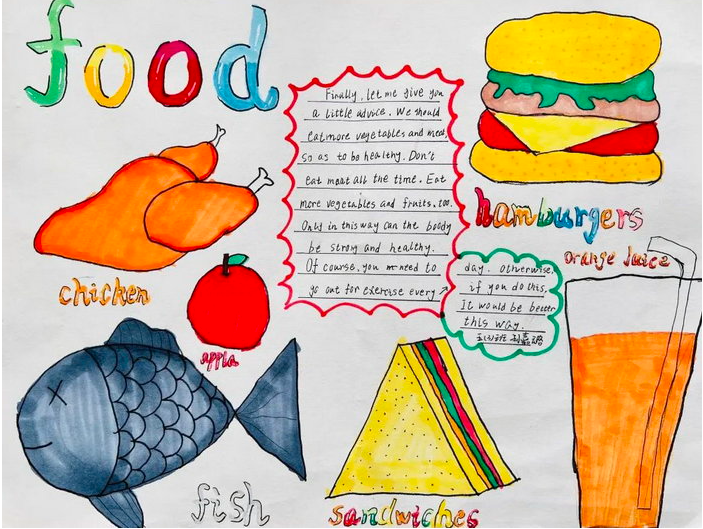 food
Finally, let me give you
a little advice. We should
eat more vegetables and meat,
so as to be healthy. Don't
eat meat all the time. Eat
more vegetables and fruits, too.
Only in this way can the boody
be strong and healthy.
Of course, you need to
go out for exercise every
day. Otherwise,
if you do this,
It would be better
this way.
hamburgers
orange Juice
chicken
apple
fish
sandwiches